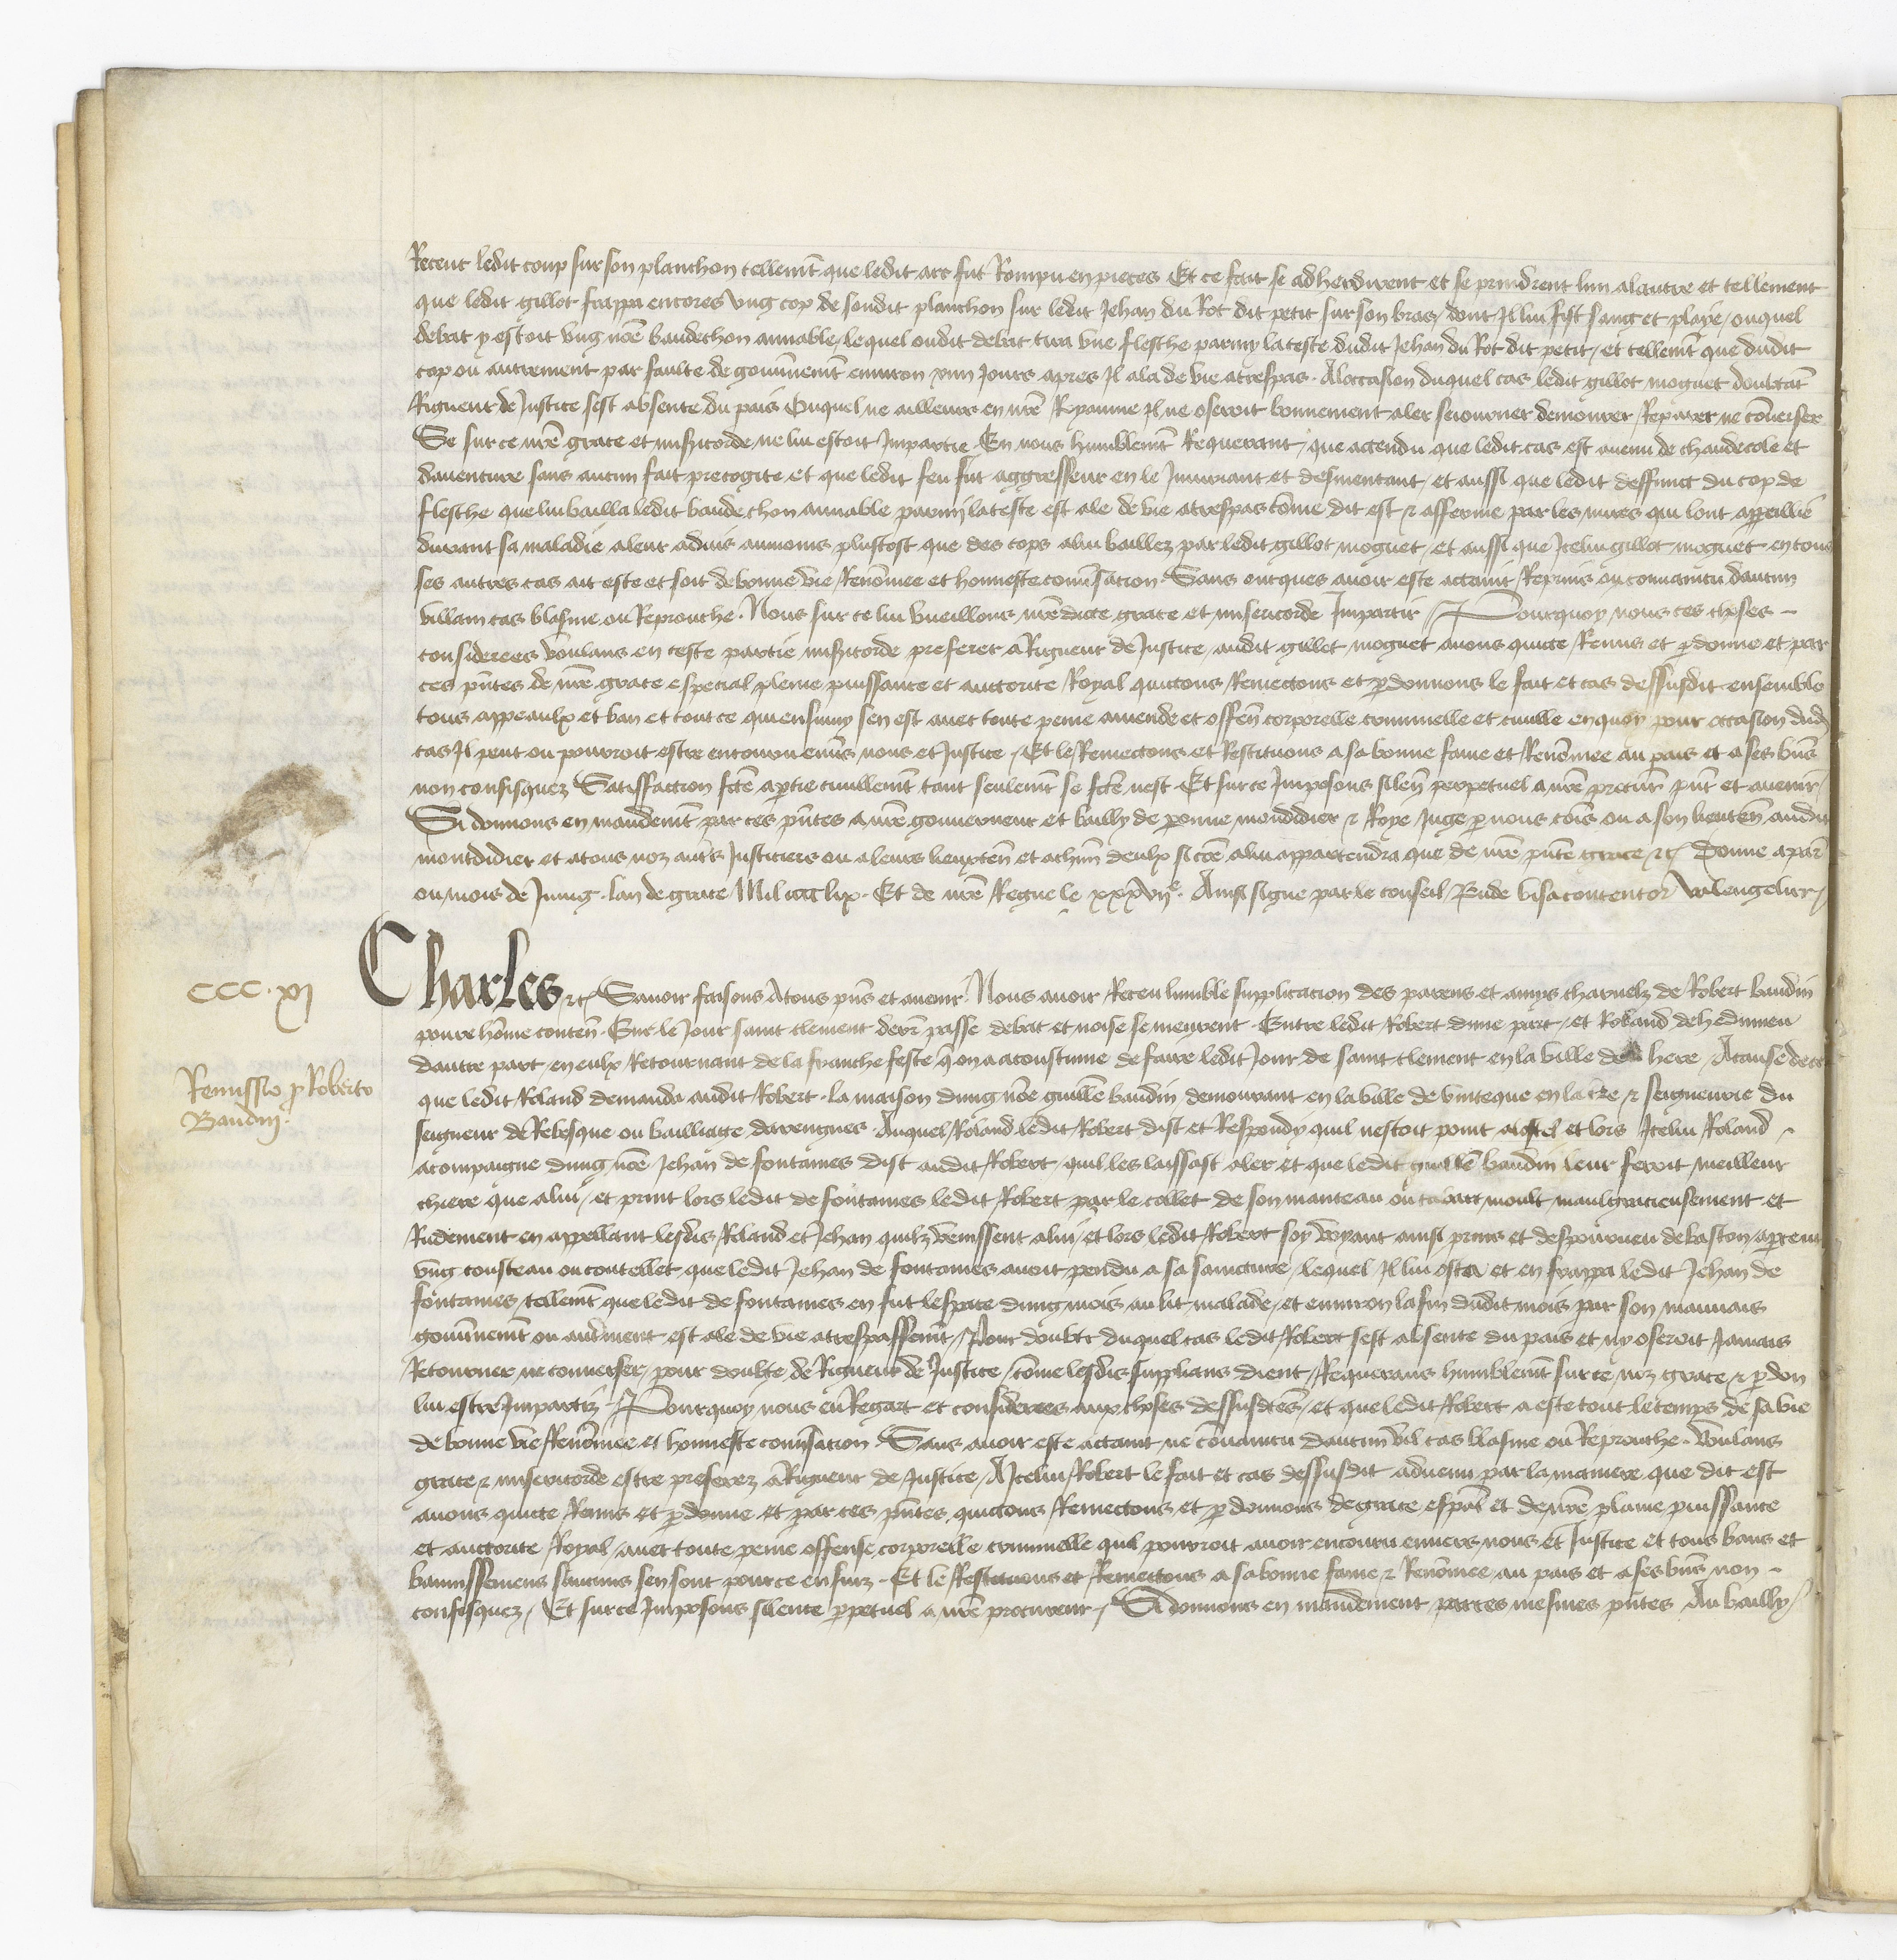 Receut ledit coup sur son planchon tellemt que ledit arc fut Rompu en pieces Et ce fait se adherdirent et se prindrent lun a lautre et tellement
que ledit gillot frappa encores ung cop de sondit planchon sur ledit Jehan du Rot dit petit sur son bras / dont Il lui fist sang et playe / ouquel
debat y estoit ung nōe baudechon amiable / lequel oudit debat tira une flesche parmy la teste dudit Jehan du Rot dit petit / et tellemt que dudit
cop ou autrement par faulte de gouūnemt environ viii Jours apres Il ala de vie a trespas . A loccasion duquel cas ledit gillot moguet doubtāt
Rigueur de Justice sest absente du pais Ouquel ne ailleurs en nrē Royaume Il ne oseroit bonnement aler seiourner demourer / Repairer ne cōverser
Se sur ce nrē grace et misericorde ne lui estoit Impartie En nous humblemt Requerant / que actendu que ledit cas est avenu de chaudecole et
daventure sans aucun fait precogite et que ledit feu fut aggresseur en le Iniuriant et desmentant / et aussi que ledit deffunct du cop de
flesche que lui bailla ledit baudechon amiable parmi la teste est ale de vie a trespas cōme dit est & afferme par les mires qui lont appeillie
durant sa maladie a leur advis aumoins plustost que des cops a lui baillez par ledit gillot moguet / et aussi que Icelui gillot moguet en tous
ses autres cas ait este et soit de bonne vie Renōmee et honneste convsacion . Sans oncques avoir este actaint Reprins ou convaincu daucun
villain cas blasme ou Reprouche . Nous sur ce lui vueillons nrēdicte grace et misericorde Impartir / Pourquoy nous ces choses
considerees voulans en ceste partie misericorde preferer a Rigueur de Justice / audit gillot moguet avons quicte Remis et pdonne et par
ces pntes de nrē grace especial pleine puissance et auctorite Royal quictons Remectons et pdonnons le fait et cas dessusdit ensemble
tous appeaulx et ban et tout ce qui ensuivy sen est avec toute peine amende et offen corporelle criminelle et civille en quoy pour occasion dud
cas Il peut ou pourroit estre encouru envs nous et Justice / Et le Remectons et Restituons a sa bonne fame et Renōmee au pais et a ses bns
non confisquez Satisfaction fcē a ptie civillemt tant seulemt se fcē nest Et sur ce Imposons silen perpetuel a nrē procur pnt et avenir /
Si donnons en mandemt par ces pntes a nrē gouverneur et bailly de peronne mondidier & Roye Juge p nous cōis ou a son lieuten audit
montdidier et a tous noz autrs Justiciers ou a leurs lieuxten et a chun deulx si cōe a lui appartendra que de nrē pnte grace &c Donne a par
ou mois de Juing . lan de grace Mil iiiic lix . Et de nrē Regne le xxxviie . Ainsi signe par le conseil / Bude visa contentor Valengelier /
CCC.xi
Remissio p Roberto
Baudin.
Charles &c Savoir faisons A tous pns et avenir Nous avoir Receu lumble supplicacion des parens et amys charnelz de Robert baudin
povre hōme conten . Que le Jour saint clement derr passe debat et noise se meurent . Entre ledit Robert dune part / et Roland dehedinneu
dautre part / en eulx Retournant de la franche feste qon a acoustume de faire ledit Jour de saint clement en la ville de here / A cause de ce
que ledit Roland demanda audit Robert . la maison dung nōe guillē baudin demourant en la ville de vinteque en la tre & seigneurie du
seigneur de Rebesque ou bailliage davengnes . Auquel Roland ledit Robert dist et Respondy quil nestoit point a lostel et lors Icelui Roland
acompaigne dung nōe Jehan de fontaines dist audit Robert / quil les laissast aler et que ledit guillē baudin leur feroit meilleur
chiere que a lui / et print lors ledit de fontaines ledit Robert par le colet de son manteau ou tabart moult maulgracieusement et
Rudement en appellant lesdis Roland et Jehan quilz venissent a lui / et lors ledit Robert soy voyant ainsi prins et despourveu de baston / apceut
ung cousteau ou coutellet que ledit Jehan de fontaines avoit pendu a sa sainture / lequel Il lui osta et en frappa ledit Jehan de
fontaines / tellemt que ledit de fontaines en fut lespace dung mois au lit malade / et environ la fin dudit mois par son mauvais
gouūnemt ou autrment est ale de vie a trespassemt / Pour doubte duquel cas ledit Robert sest absente du pais et ny oseroit Jamais
Retourner ne converser / pour doubte de Rigueur de Justice / cōme lesdis supplians dient / Requerans humblemt sur ce noz grace & pdon
lui estre Impartiz . Pourquoy nous eu Regart et consideres aux choses dessusdctes / et que ledit Robert a este tout le temps de sa vie
de bonne vie Renōmee et honneste convsacion . Sans avoir este actaint ne convaincu daucun vil cas blasme ou Reprouche . Voulans
grace & misericorde estre preferez a Rigueur de Justice / A Icelui Robert le fait et cas dessusdit advenu par la maniere que dit est
avons quicte Remis et pdonne et par ces pntes quictons Remectons et pdonnons de grace espal et de nrē plaine puissance
et auctorite Royal / avec toute peine offense corporelle criminelle quil pourroit avoir encouru envers nous et Justice et tous bans et
bannissemens saucuns sen sont pour ce ensuiz . Et le Restituons et Remectons a sa bonne fame & Renōmee au pais et a ses bns non
confisquez / Et sur ce Imposons silence ppetuel a nrē procureur / Si donnons en mandement par ces mesmes pntes Au bailly /